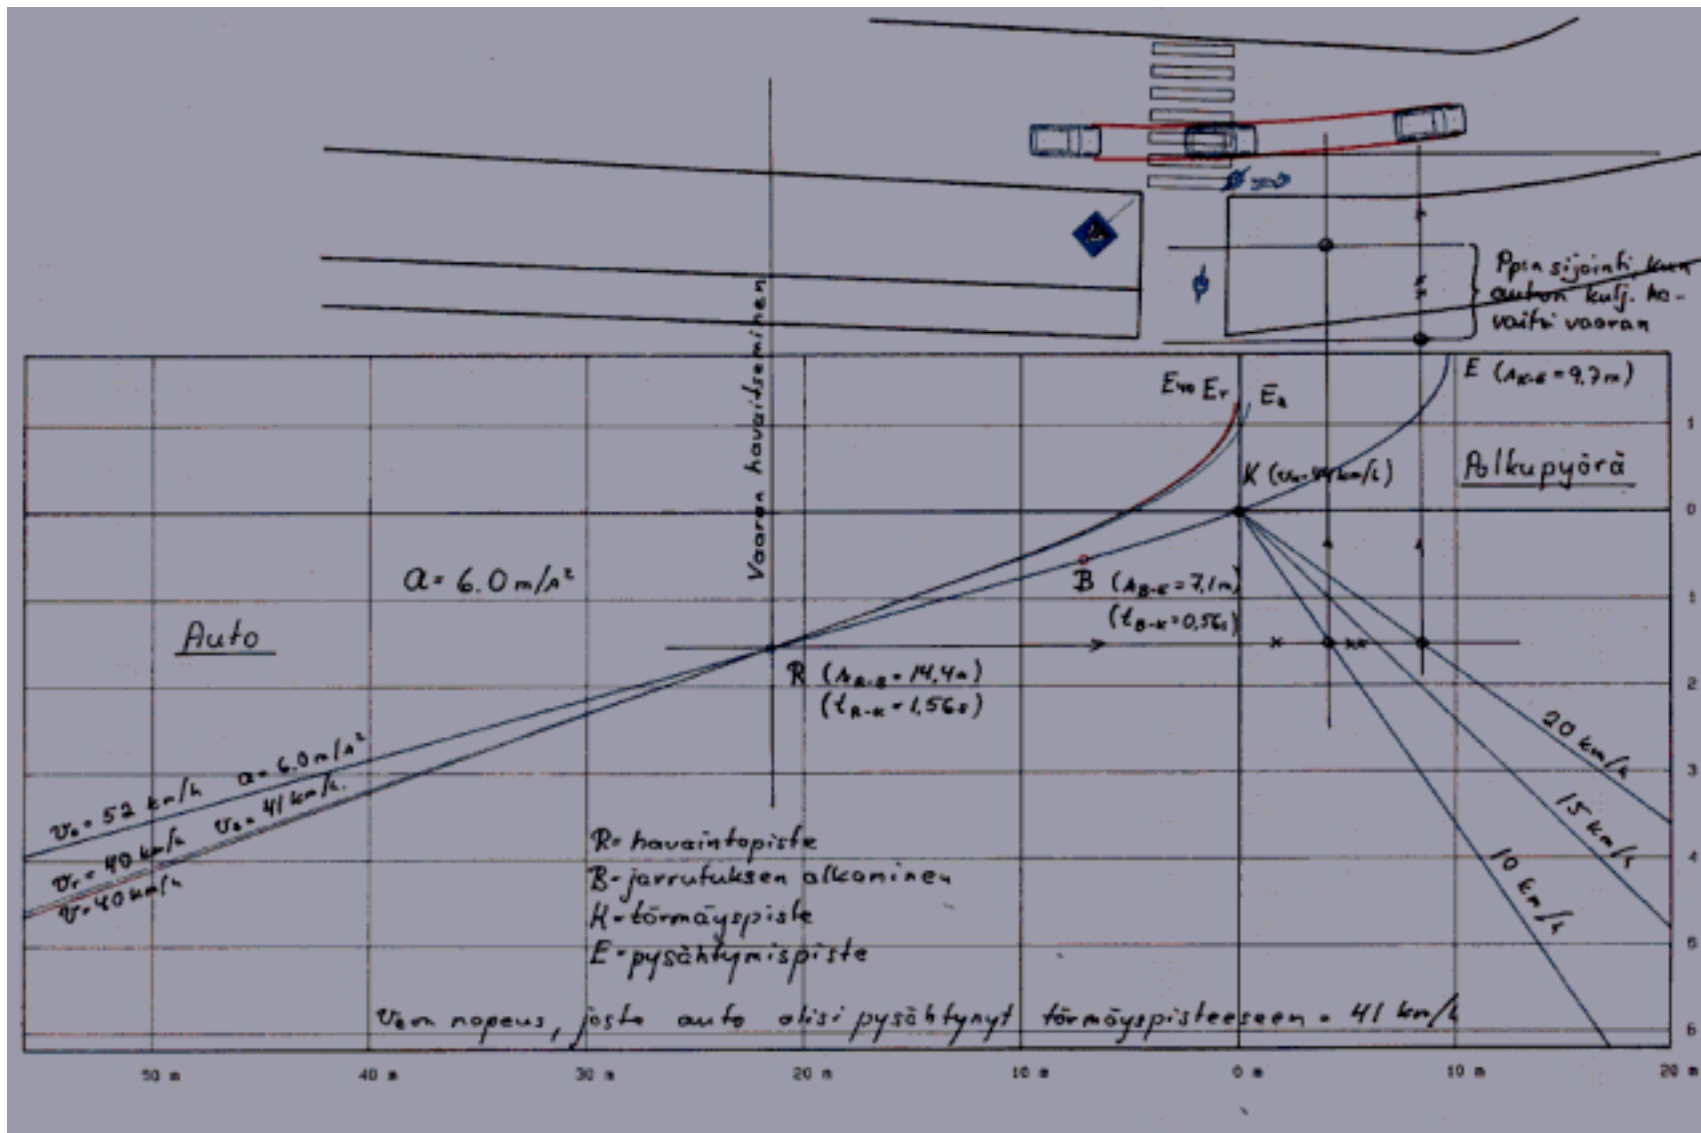 Ppin sijainti, kun
auton kulj. ha-
vaitsi vaaran
Vaaran havaitseminen
E₄₀ Eᵣ Eₐ
E (s_K-E = 9,7 m)
K (vₖ = 44 km/h)
Polkupyörä
a = 6.0 m/s²
B (s_B-K = 7,1 m)
(t_B-K = 0,56 s)
Auto
R (s_R-B = 14,4 m)
(t_R-K = 1,56 s)
v₀ = 52 km/h a = 6.0 m/s²
vᵣ = 40 km/h vₐ = 41 km/h.
v = 40 km/h
20 km/h
15 km/h
10 km/h
R = havaintopiste
B = jarrutuksen alkaminen
K = törmäyspiste
E = pysähtymispiste
nopeus, josta auto olisi pysähtynyt törmäyspisteeseen = 41 km/h
1
0
1
2
3
4
5
6
50 m 40 m 30 m 20 m 10 m 0 m 10 m 20 m